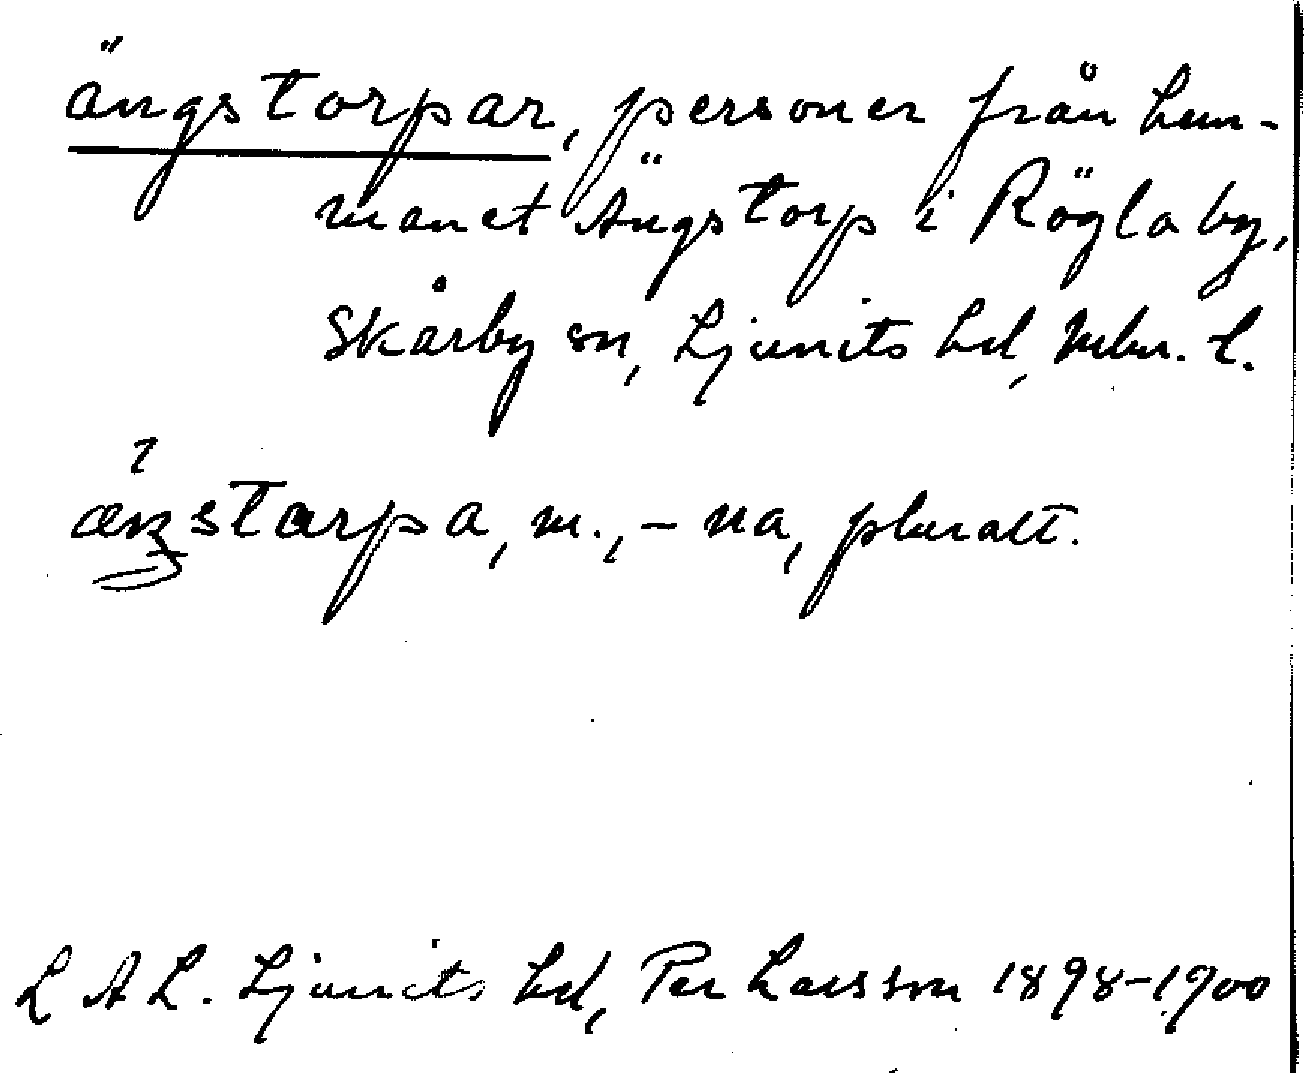 ängstorpar, personer från hem-
manet Ängstorp i Rögla by,
Skårby sn, Ljunits hd, Mlm. l.
ænstarpa, m., - na, pluralt.
L A L. Ljunits hd, Per Larsson 1898-1900